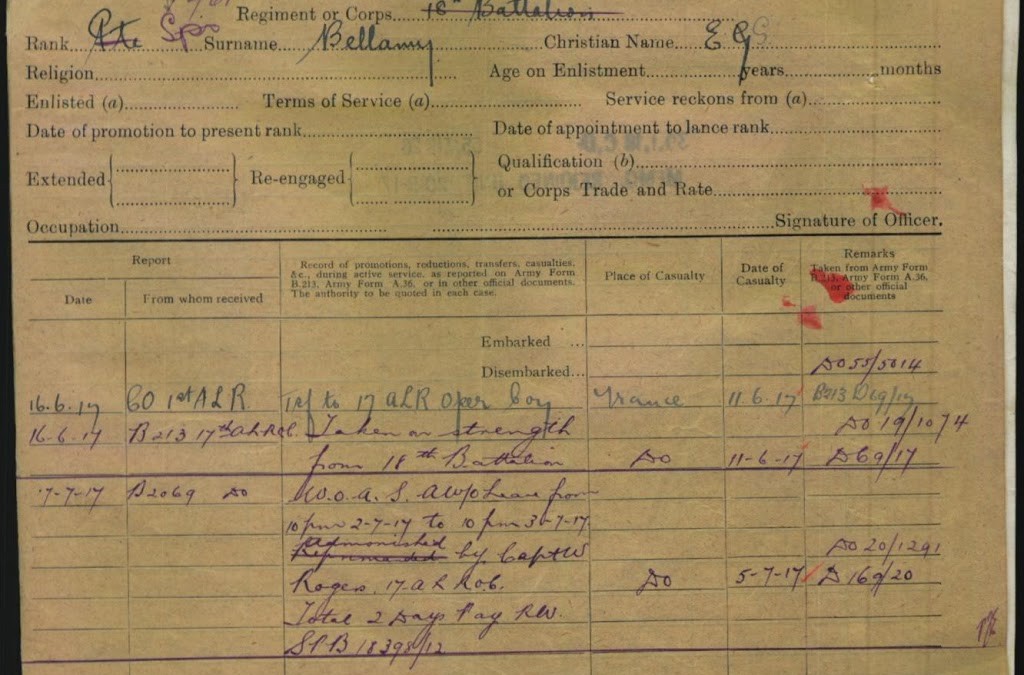 Regiment or Corps 18th Battalion
Rank Pte Spr Surname Bellamy Christian Name E G
Religion Age on Enlistment years months
Enlisted (a) Terms of Service (a) Service reckons from (a)
Date of promotion to present rank Date of appointment to lance rank
Extended Re-engaged Qualification (b)
or Corps Trade and Rate
Occupation Signature of Officer.
Report Record of promotions, reductions, transfers, casualties, &c., during active service, as reported on Army Form B.213, Army Form A.36, or in other official documents. The authority to be quoted in each case. Place of Casualty Date of Casualty Remarks Taken from Army Form B.213, Army Form A.36, or other official documents
Date From whom received
Embarked ...
Disembarked... DO 55/5014
16.6.17 CO 1st A L R. Trf to 17 A L R Oper Coy France 11.6.17 B213 D69/17
16-6-17 B213 17th A L R O C. Taken on strength DO 19/1074
from 18th Battalion DO 11-6-17 D69/17
7-7-17 B2069 DO W.O.A.S. AW/O Leave from
10 pm 2-7-17 to 10 pm 3-7-17
Admonished
Reprimanded by Capt W DO 20/1291
Rogers. 17 A L R O C. DO 5-7-17 D 169/20
Total 2 Days Pay RW.
18398/12